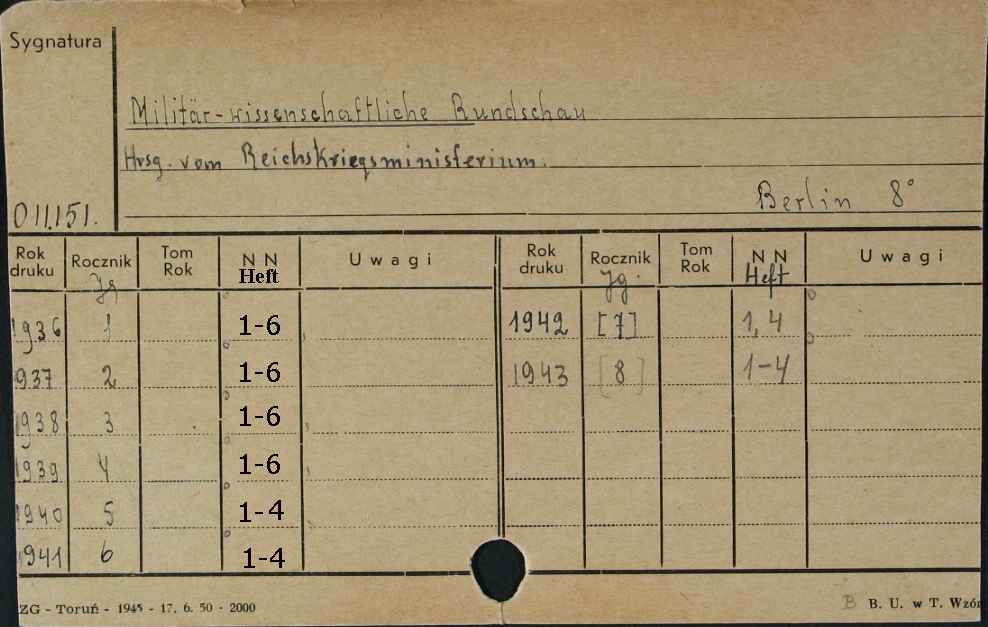 Sygnatura
Militär-wissenschaftliche Rundschau
Hrsg. vom Reichskriegsministerium.
Berlin 8°
O II.151.
Rok druku Rocznik Jg Tom Rok N N Heft Uwagi Rok druku Rocznik Jg. Tom Rok N N Heft Uwagi
1936 1 1-6 1942 [7] 1,4
1937 2 1-6 1943 [8] 1-4
1938 3 1-6
1939 4 1-6
1940 5 1-4
1941 6 1-4
ZG - Toruń - 1945 - 17. 6. 50 - 2000 B B. U. w T. Wzór